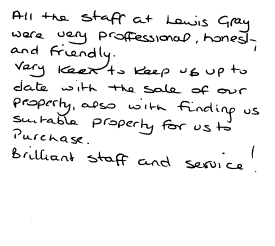 All the staff at Lewis Gray
were very proffessional, honest
and friendly!
Very keen to keep us up to
date with the sale of our
property, also with finding us
suitable property for us to
Purchase.
Brilliant staff and service!